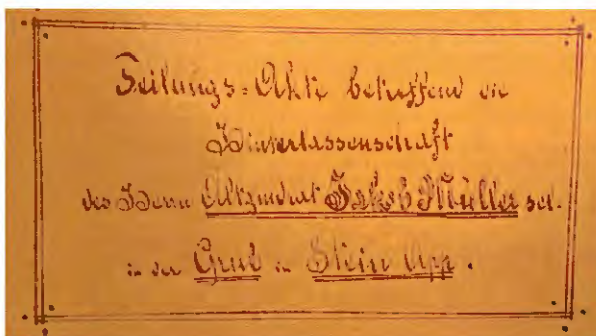 Teilungs=Akte betreffend die
Hinterlassenschaft
des Herrn Jakob Müller sel.
in der Grub in Stein App.